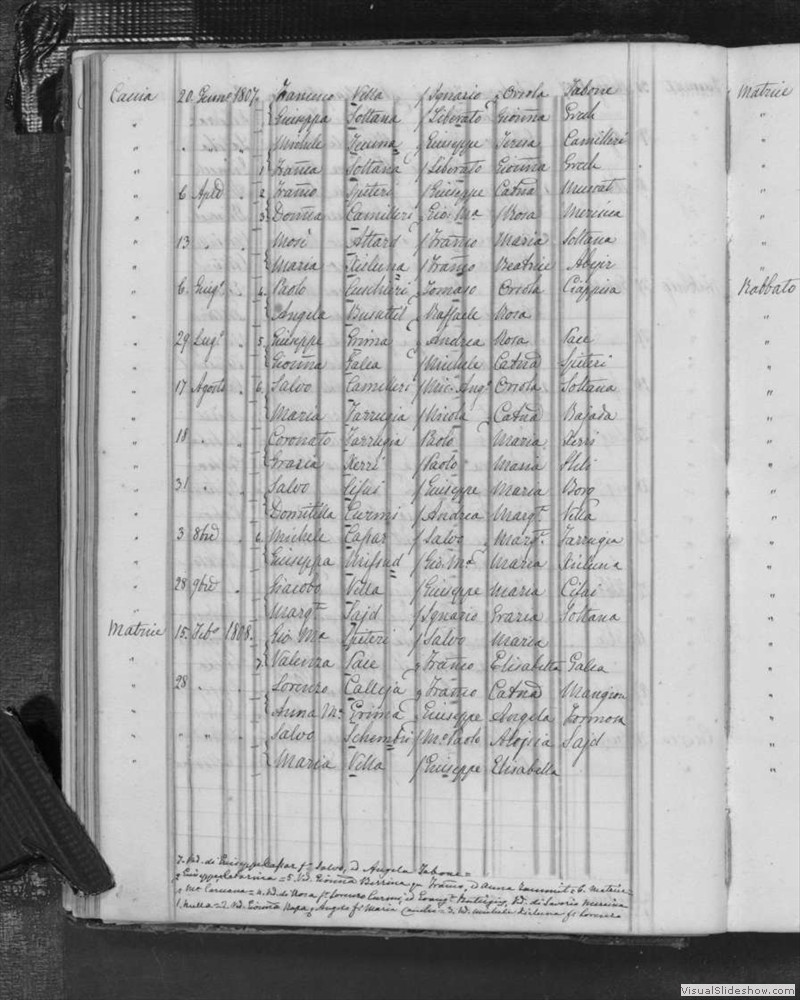 Caccia 20 Genno 1807. Francesco Vella f Ignazio Orsola Tabone Matrice
" Giuseppa Soltana f Liberato Gioṅna Grech "
" Michele f Giuseppe Teresa Camilleri
" 1 Franca Soltana f Liberato Gioṅna Grech
" 6 Aple 2 Franco Spiteri f Giuseppe Catna Muscat
" 3 Donna Camilleri Gio. Ma Rosa
" 13 " Mosè Attard f Franco Maria Soltana
" Maria Xicluna f Franco Beatrice Abejer
" 6 Giugo 4 Paolo Cuschieri Tomaso Orsola Ciappesa Rabbato
" Angela Busuttil Raffaele Rosa "
" 29 Lugo 5 Giuseppe Grima Andrea Rosa Pace
" Gioṅna Galea f Michele Catna Spiteri
" 17 Agosto 6 Salvo Camilleri f Mic. Ango Orsola Soltana
" Maria Farrugia f Nicola Catna Bajada
" 18 " Coronato Farrugia Paolo Maria Xerri
" Grazia Xerri f Paolo Maria
" 31 " Salvo f Giuseppe Maria Borg
" Domitilla Curmi f Andrea Margta Vella
" 3 8bre 6 Michele Capar f Salvo Margta Farrugia
" Giuseppa Mifsud f Gio. Ma Maria Xicluna
" 28 9bre Giacobo Vella f Giuseppe Maria
" Margta Sajd f Ignazio Grazia Soltana
Matrice 15. Febo 1808. Gio Ma Spiteri f Salvo Maria
" 7 Valenza Pace Franco Elisabetta Galea
" 28 " Lorenzo Calleja Franco Catna
" Anna Ma Grima Giuseppe Angela Formosa
" " " Salvo Schembri f Mo Paolo Alojsia Sajd
" Maria Vella f Giuseppe Elisabetta
7. Vid. di Giuseppe Capar f Salvo, ed Angela Tabone =
Giuseppe = 5. Vid. Gioṅna Franco, ed Anna Sammut = 6. Matrice =
Mo Caruana = 4. Vid. di Rosa f Lorenzo Curmi, ed Vid. di Saverio
1. Nulla = 2. Vid. Gioṅna Angelo f Maria = 3. Vid. Michele Xicluna f Lorenzo
VisualSlideshow.com